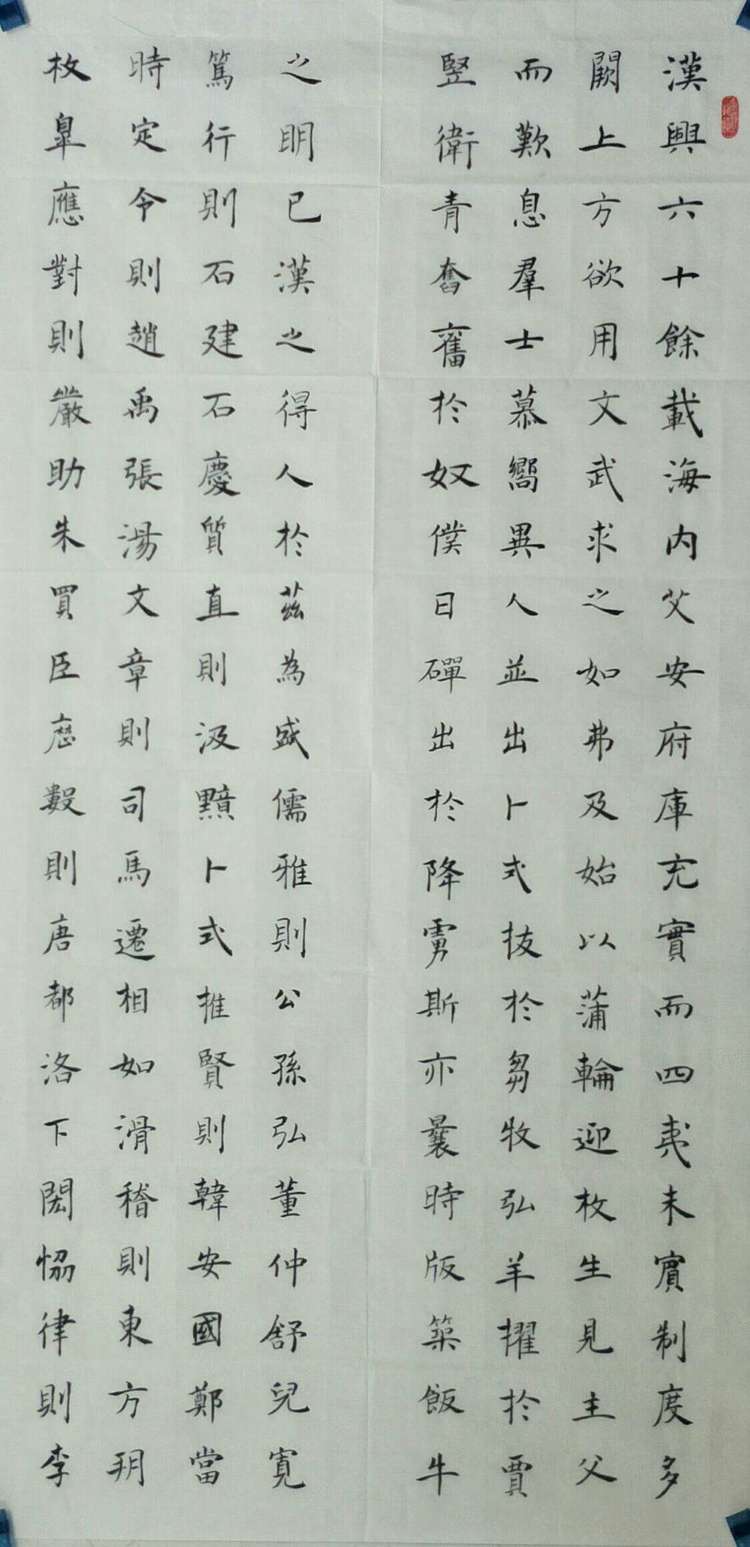 漢興六十餘載海内艾安府庫充實而四夷未賓制度多
闕上方欲用文武求之如弗及始以蒲輪迎枚生見主父
而歎息羣士慕嚮異人並出卜式拔於芻牧弘羊擢於賈
竪衛青奮舊於奴僕日磾出於降虜斯亦曩時版築飯牛
之朋已漢之得人於茲為盛儒雅則公孫弘董仲舒兒寬
篤行則石建石慶質直則汲黯卜式推賢則韓安國鄭當
時定令則趙禹張湯文章則司馬遷相如滑稽則東方朔
枚皐應對則嚴助朱買臣歷數則唐都洛下閎恊律則李